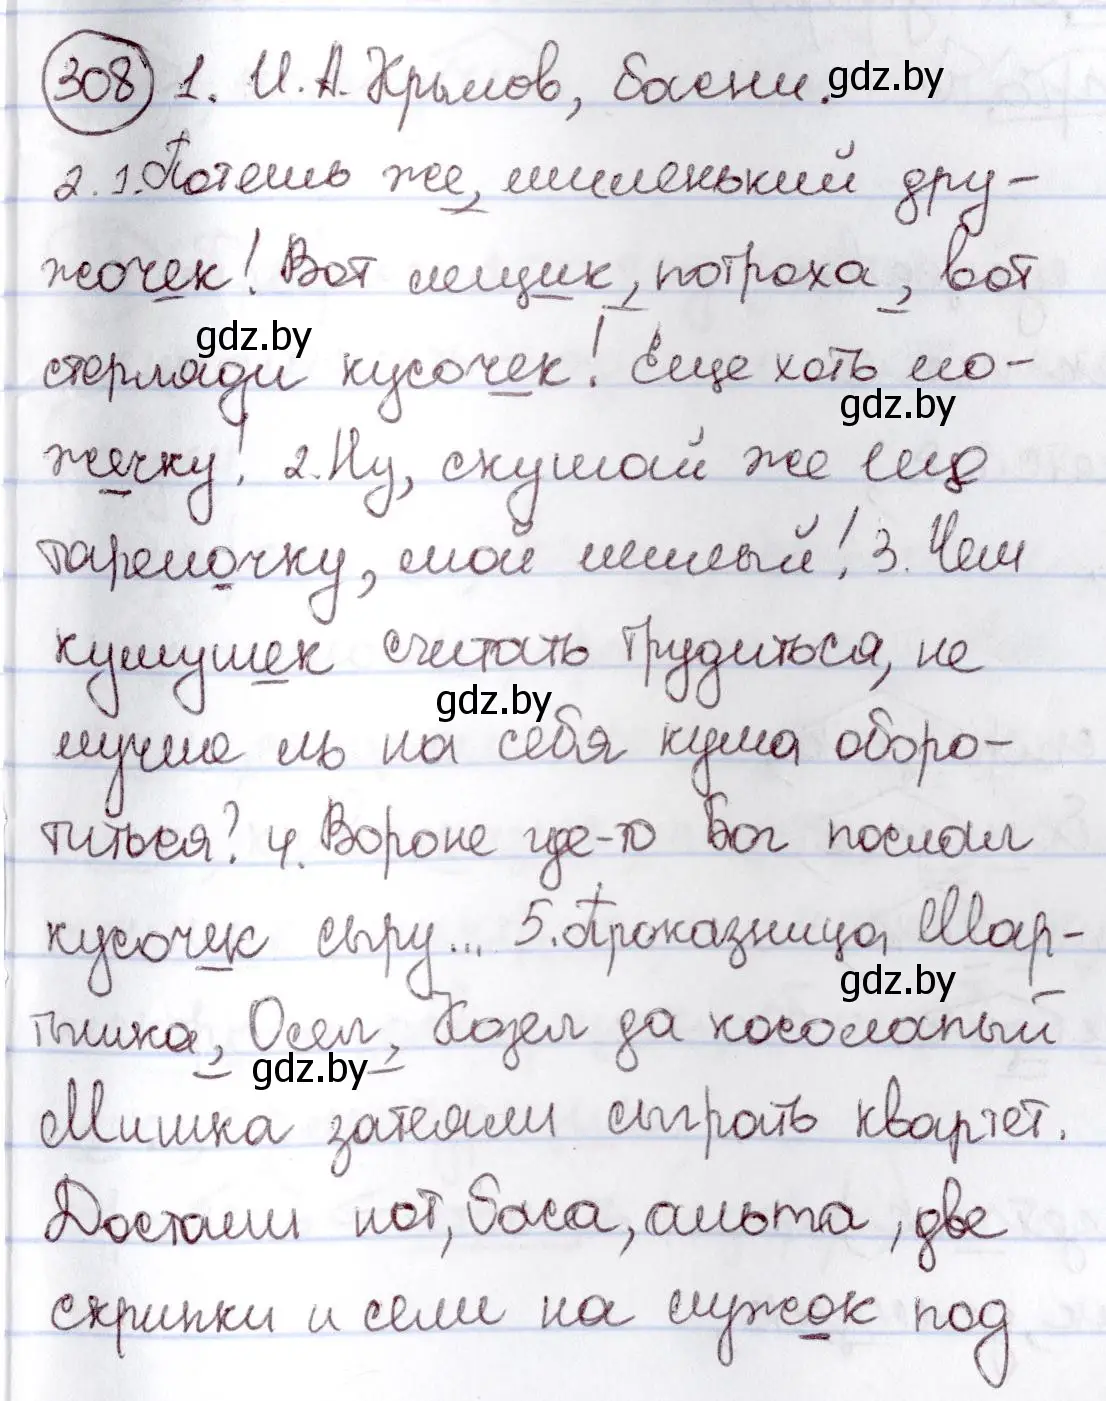 308 1. И. А. Крылов, басни.
gdz.by
2. 1. Потешь же, миленький дру-
жочек! Вот лещик, потроха, вот
gdz.by
стерляди кусочек! Еще хоть ло-
gdz.by
жечку! 2. Ну, скушай же еще
тарелочку, мой милый! 3. Чем
кумушек считать трудиться, не
gdz.by
лучше ль на себя кума оборо-
титься? 4. Вороне где-то Бог послал
кусочек сыру... 5. Проказница Мар-
gdz.by
тышка, Осел, Козел да косолапый
gdz.by
Мишка затеяли сыграть квартет.
Достали нот, баса, альта, две
скрипки и сели на лужок под